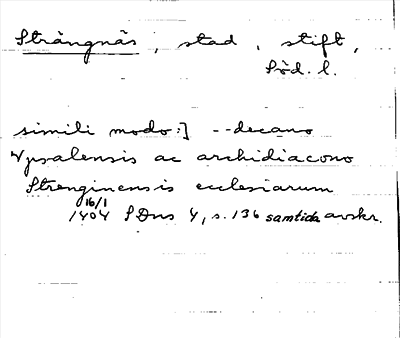 Strängnäs, stad, stift,
Söd. l.
simili modo:] --decano
Vpsalensis ac archidiacono
Strenginensis ecclesiarum
16/1
1404 SDns 4, s. 136 samtida avskr.